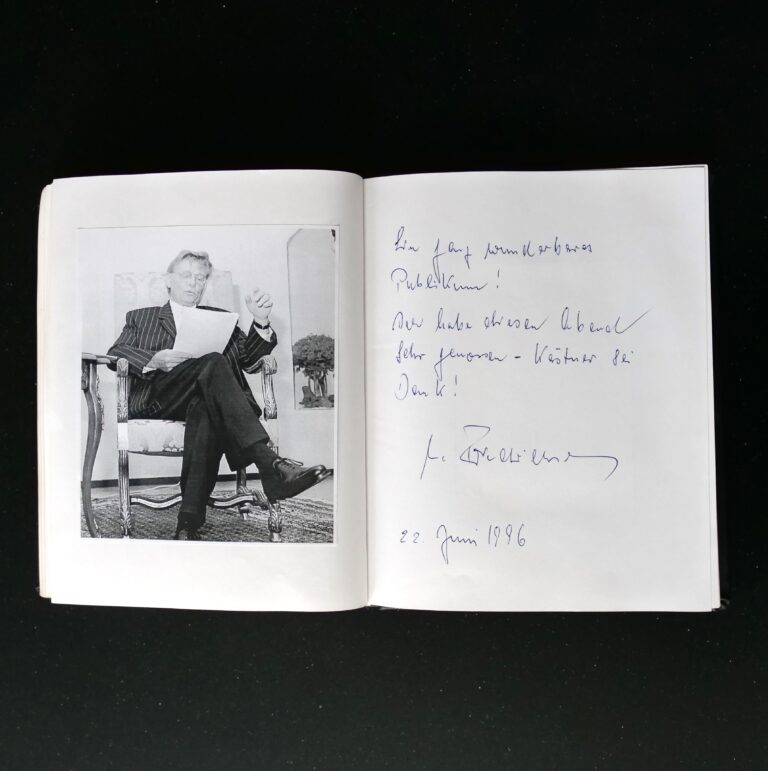 Ein ganz wunderbares
Publikum!
habe diesen Abend
Sehr genossen - Kästner sei
Dank!
22. Juni 1996